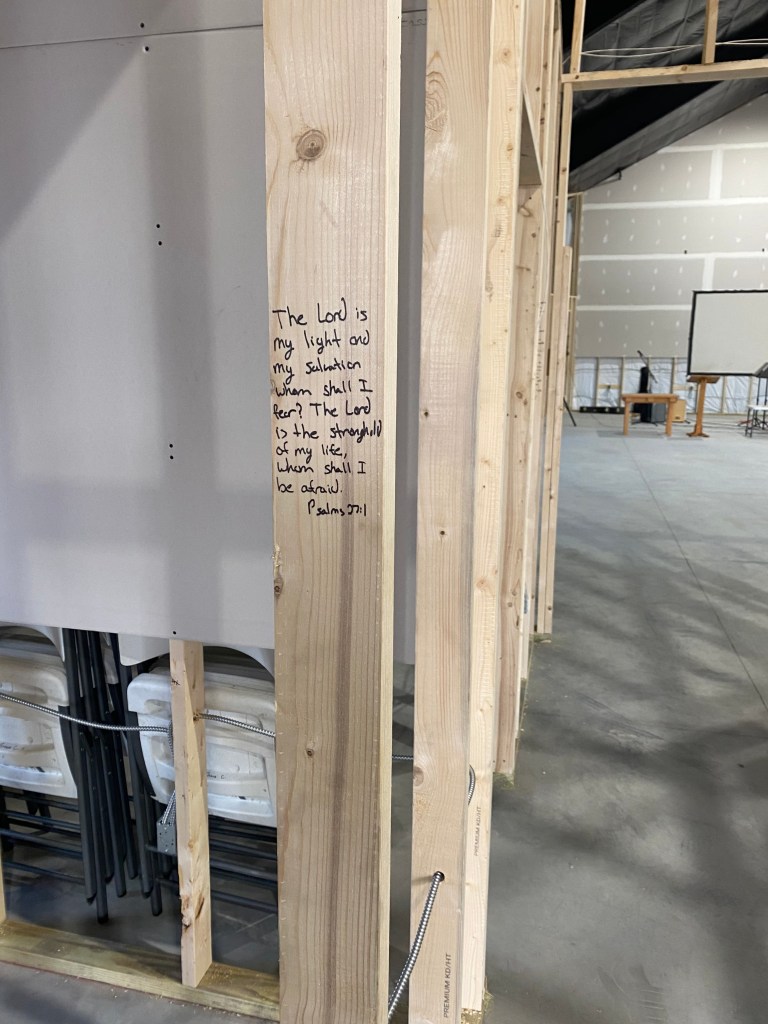 The Lord is
my light and
my salvation
whom shall I
fear? The Lord
is the stronghold
of my life,
whom shall I
be afraid.
Psalms 27:1
PREMIUM KD/HT
PREMIUM KD/HT